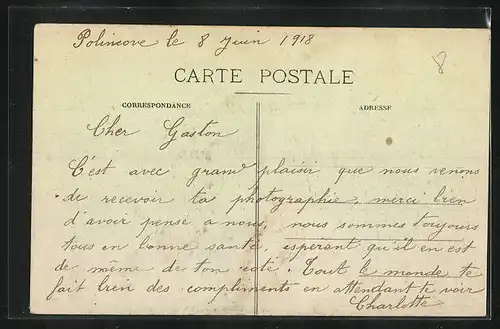 Polincove le 8 Juin 1918
8
CARTE POSTALE
CORRESPONDANCE
ADRESSE
Cher Gaston
C'est avec grand plaisir que nous venons
de recevoir ta photographie, merci bien
d'avoir pensé a nous, nous sommes toujours
tous en bonne santé, esperant qu'il en est
de même de ton coté. Tout le monde te
fait bien des compliments en attendant te voir
Charlotte